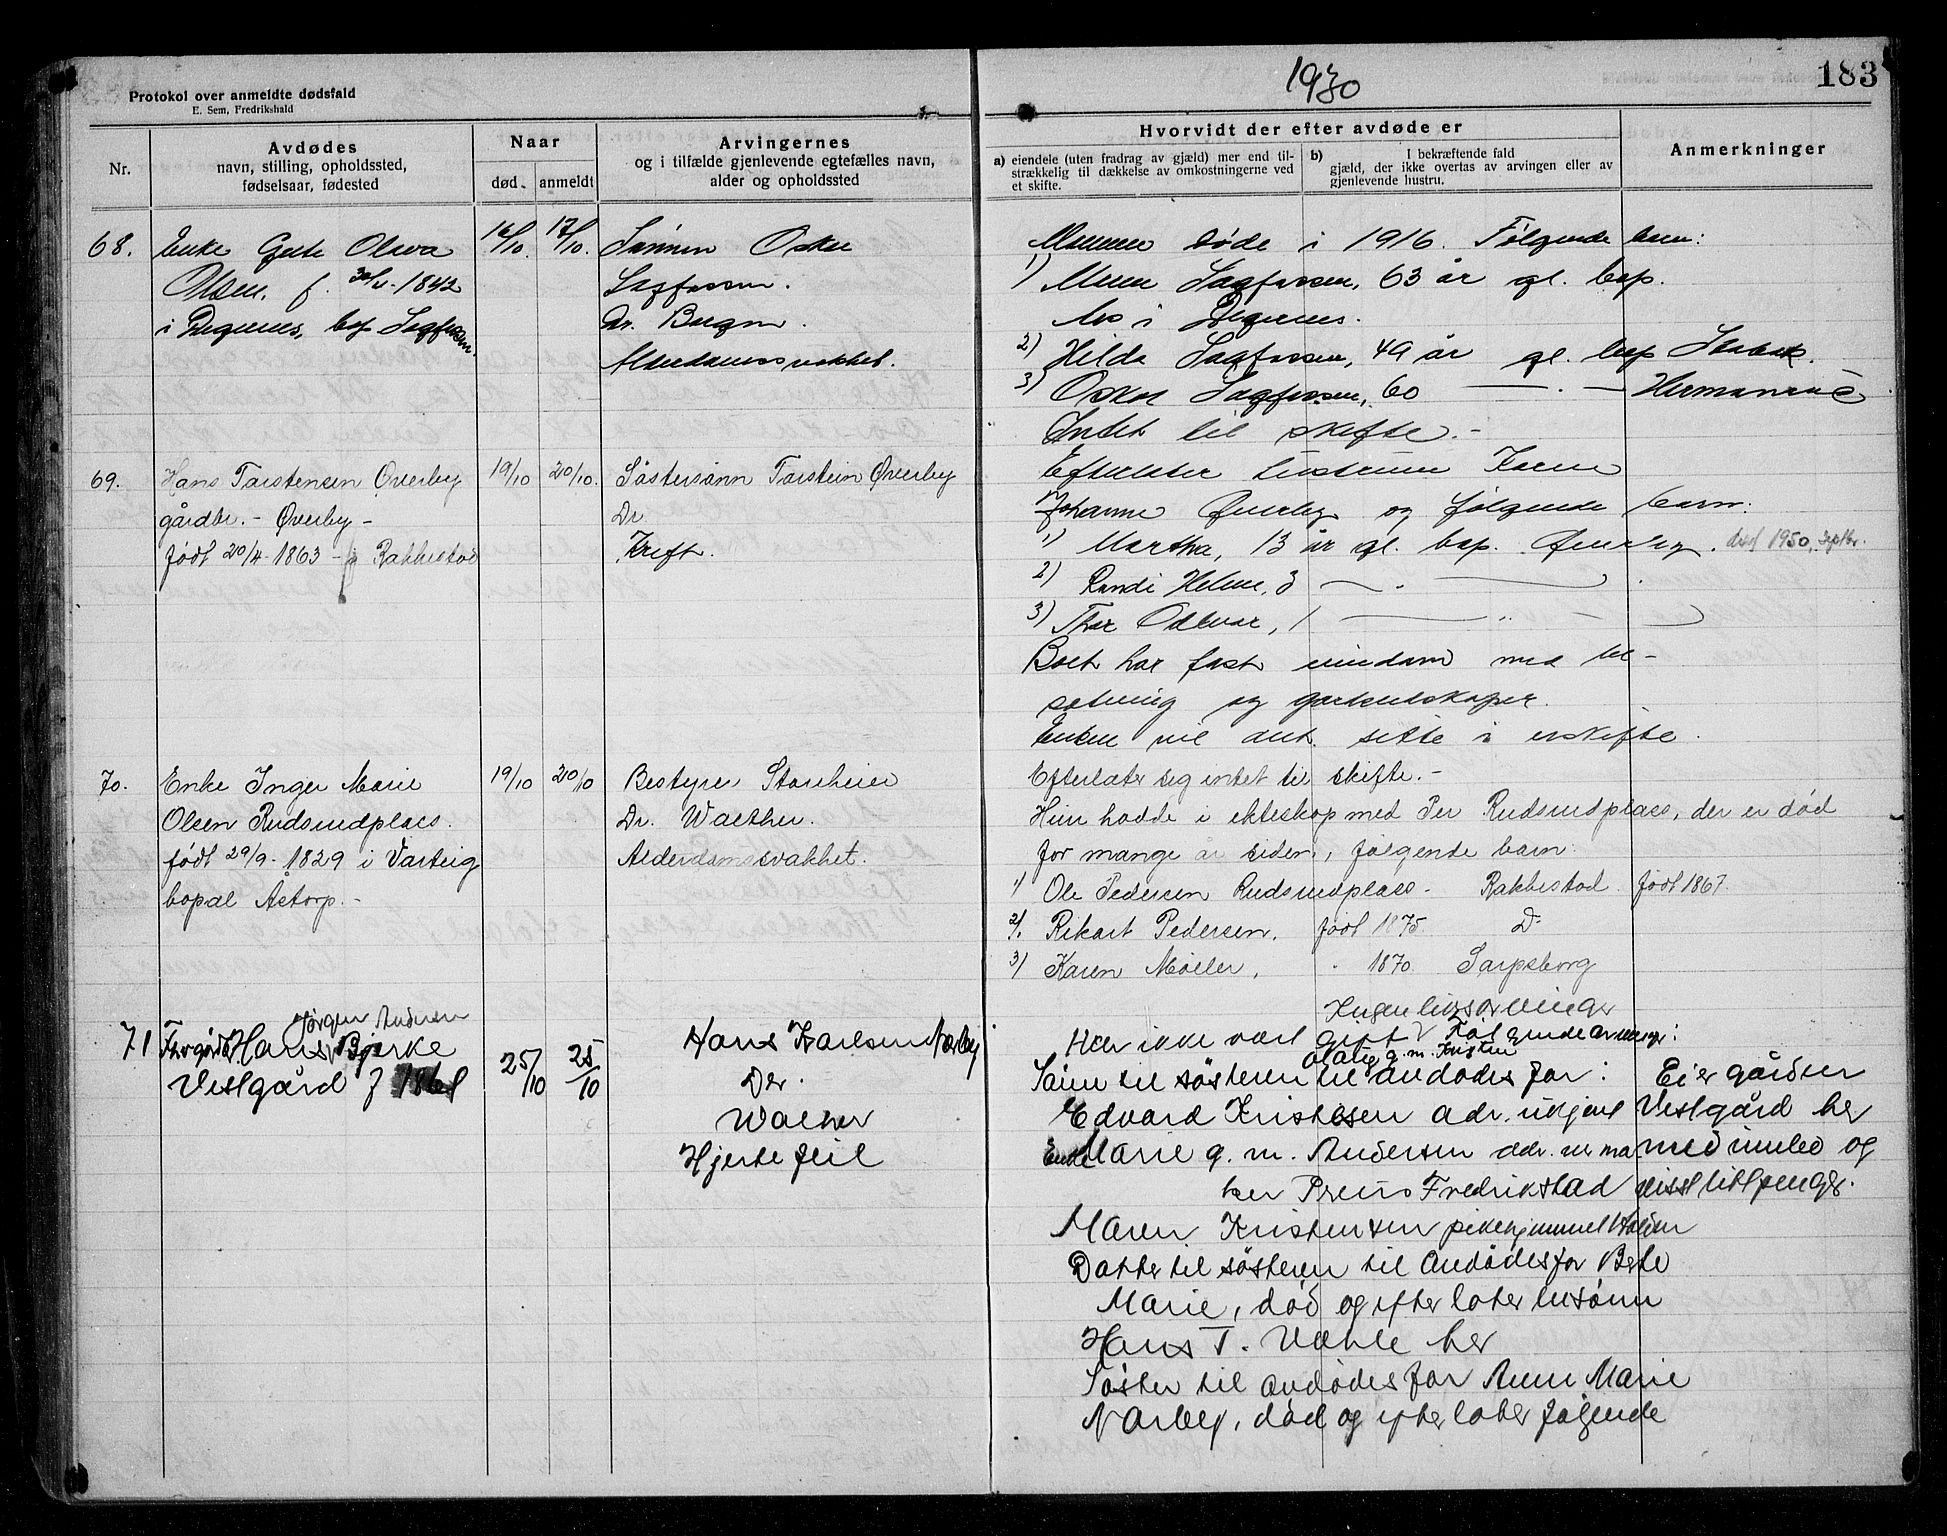 1930
183
Protokol over anmeldte dødsfald
E. Sem, Fredrikshald
Nr.
Avdødes
navn, stilling, opholdssted,
fødselsaar, fødested
Naar
død. anmeldt
Arvingernes
og i tilfælde gjenlevende egtefælles navn,
alder og opholdssted
Hvorvidt der efter avdøde er
a) eiendele (uten fradrag av gjæld) mer end til-
strækkelig til dækkelse av omkostningerne ved
et skifte.
b) I bekræftende fald
gjæld, der ikke overtas av arvingen eller av
gjenlevende hustru.
Anmerkninger
68. Enke Gute Oliva
Olsen, f. 1842
i Degernes, bop Sagfossen.
16/10. 17/10.
Sønnen Oskar
Sagfossen.
Dr. Borgen.
Alderdomssvakhet.
Mannen døde i 1916. Følgende barn:
1) Sagfossen, 63 år gl. bop.
i Degernes.
2) Hilda Sagfossen, 49 år gl. bop
3) Oskar Sagfossen, 60 — . — Hermansrud
Intet til skifte. -
69. Hans Tarstensen Øverby
gårdbr. - Øverby -
født 20/4 - 1863 - i Rakkestad
19/10 20/10.
Søstersønn Tarstein Øverby
Dr
Kreft.
Efterlater hustruen Karen
Johanne Øverby og følgende barn:
1) Martha, 13 år gl. bop. Øverby. død 1950, Septbr.
2) Randi Helene, 3 — . —
3) Thor Oddvar, 1 — „ —
Boet har fast eiendom med be-
setning og gårdsredskaper.
Enken vil ant. sitte i uskifte.
70. Enke Inger Marie
Olsen Rudsendplass.
født 29/9 - 1829 i Varteig
bopæl Åstorp. -
19/10 20/10
Bestyrer Storeheier
Dr. Walther.
Alderdomssvakhet.
Efterlater sig intet til skifte. -
Hun hadde i ekteskap med Per Rudsendplass, der er død
for mange år siden, følgende barn:
1) Ole Pedersen Rudsendplass - Rakkestad. født 1867.
2). Rikart Pedersen, født 1875 Do
3) Karen Møller, „ 1870. Sarpsborg
71 Jørgen Andresen
Hans Bjerke
Vestgård f 1861
25/10 25/10
Hans Karlsen Nærby
Der.
Walter
Hjertefeil
Ingen livsarvinger
Har ikke vært gift Følgende arvinger:
Olaug g. m. Kristen
Sønn til søsteren til avdødes far: Eier gården
Edvard Kristensen adr. ukjent Vestgård her
Enke Marie g. m. Andersen med innbo og
Fredrikstad visst litt penger.
Maren Kristensen pikehjemmet Halden
Datter til søsteren til avdødes far Berte
Marie, død og efterlater en sønn
Hans T. Vøhle her
Søster til avdødes far Anne Marie
Nærby, død og efterlater følgende